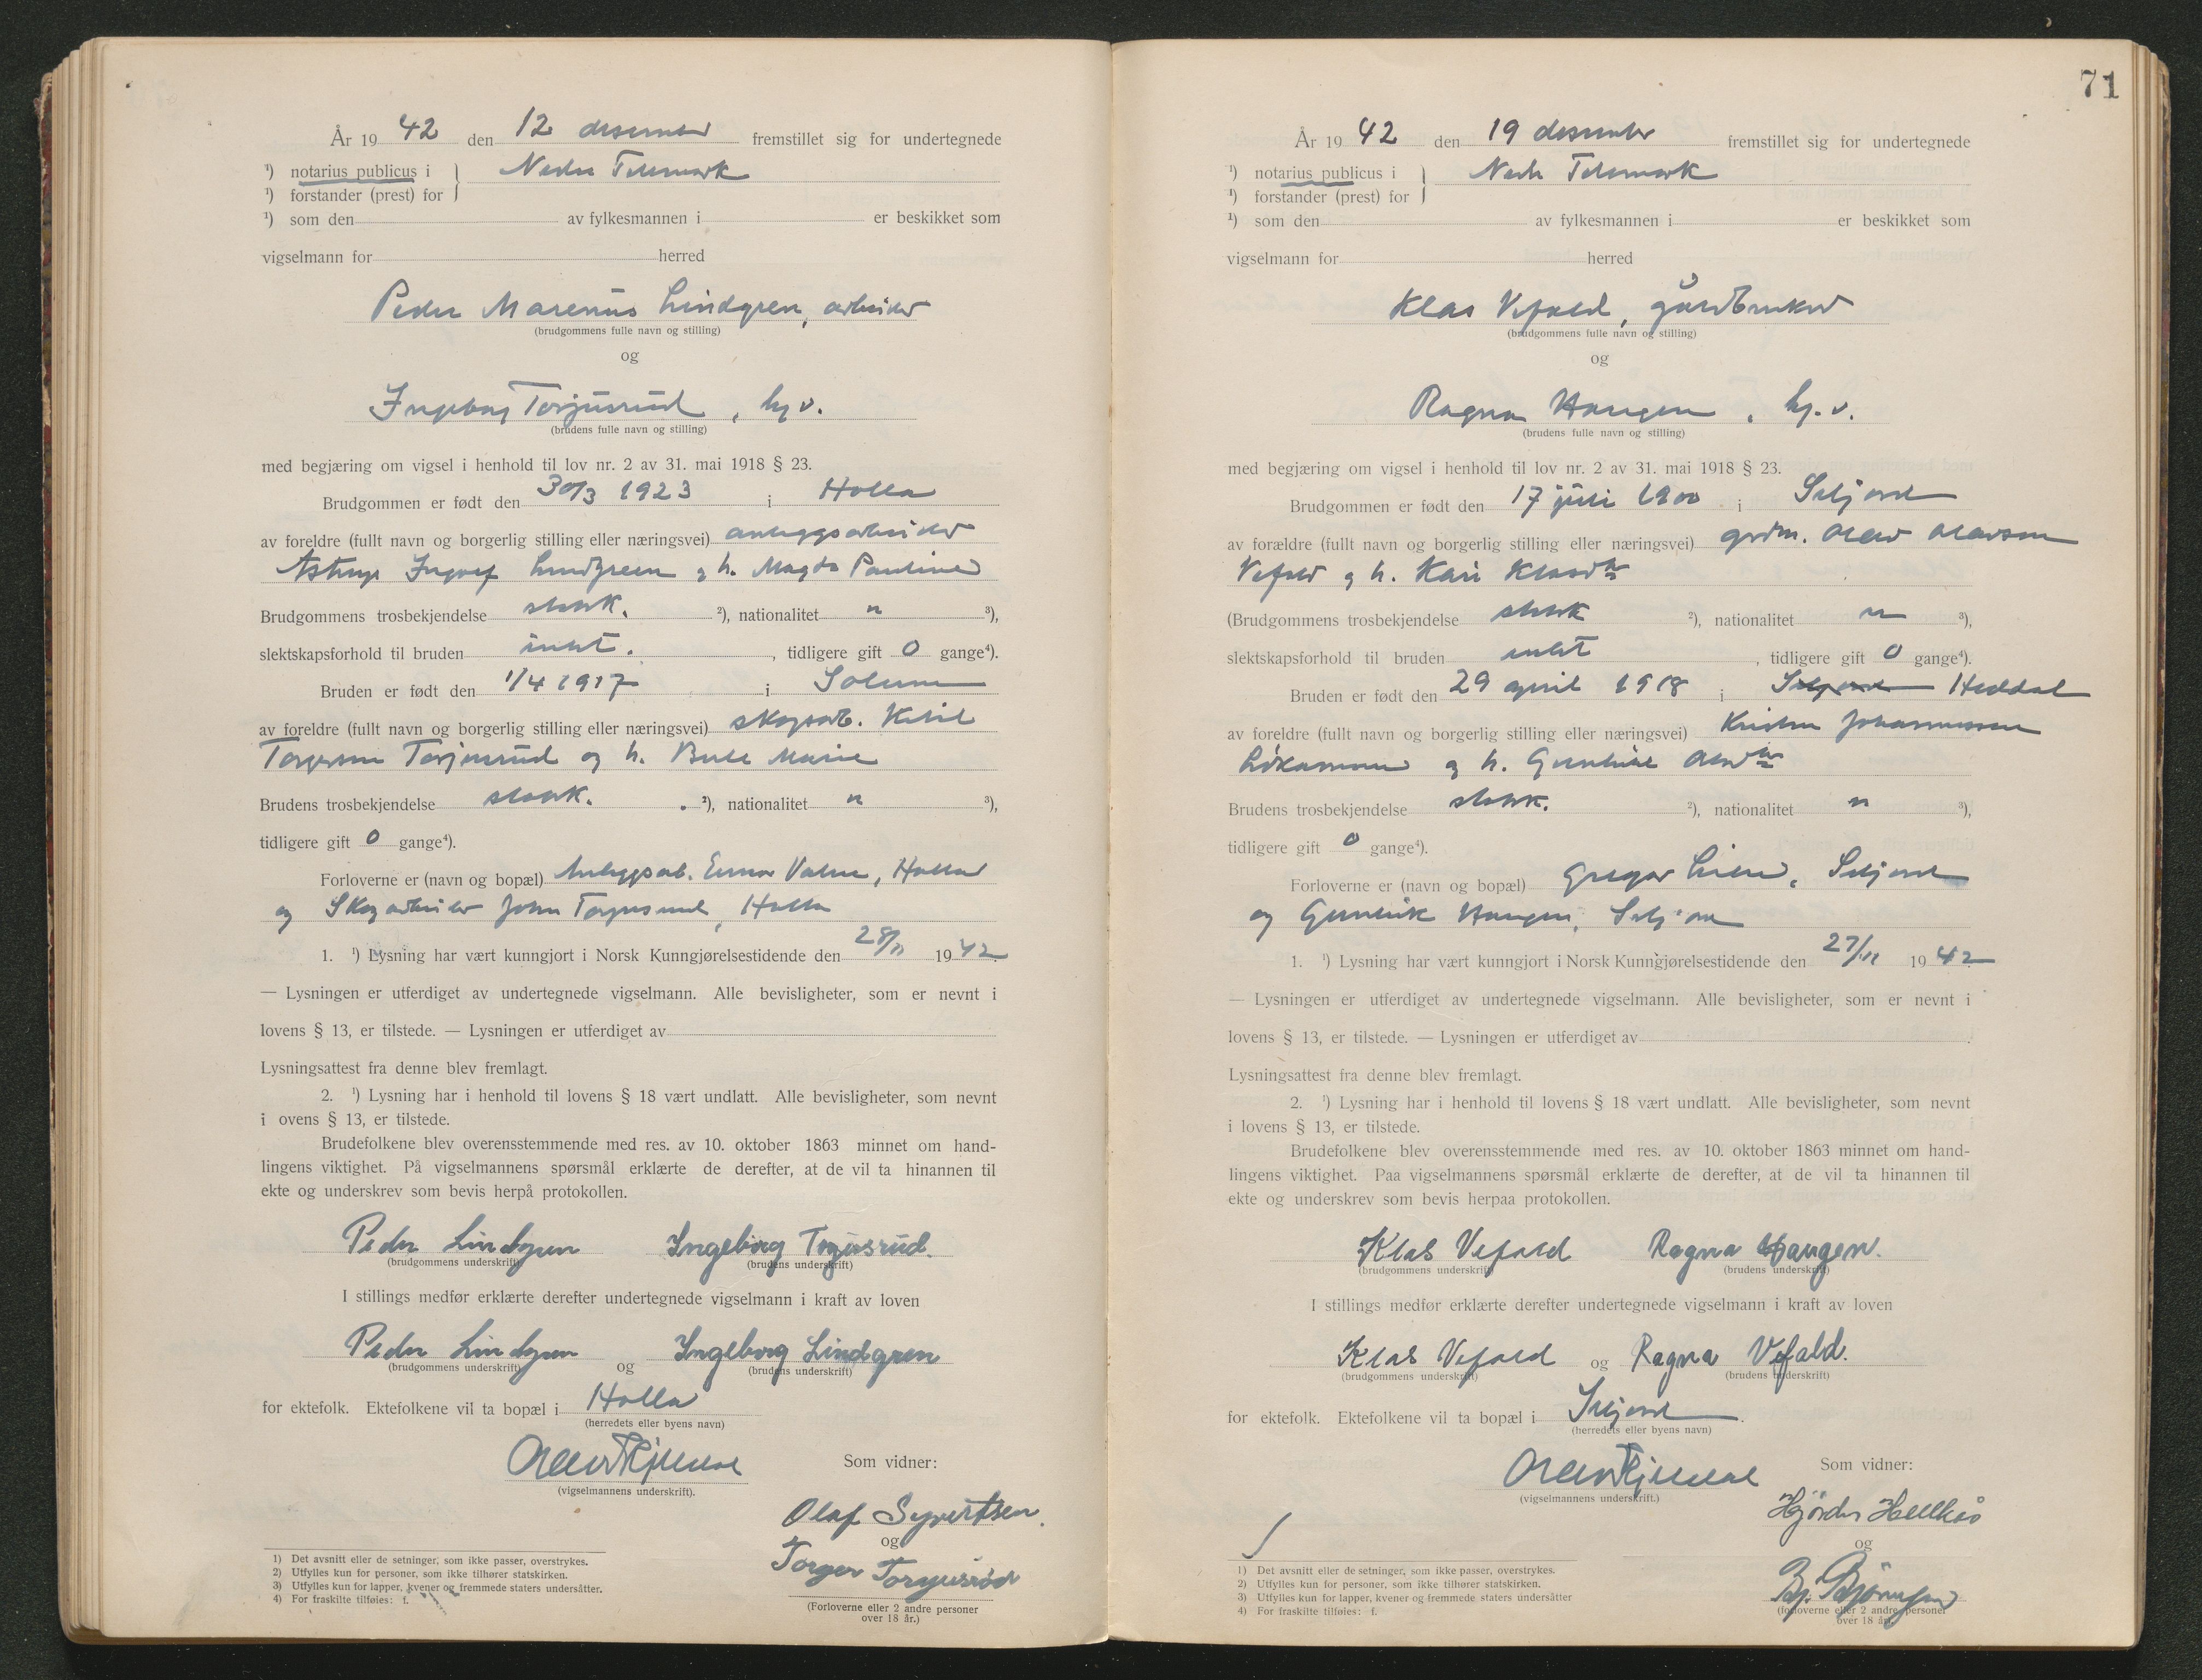 År 19 42 den 12 desember fremstillet sig for undertegnede
¹) notarius publicus i } Nedre Telemark
¹) forstander (prest) for
¹) som den av fylkesmannen i er beskikket som
vigselmann for herred
Peder Marenus Lindgren, arbeider
(brudgommens fulle navn og stilling)
og
Ingeborg Torjusrud, hj v.
(brudens fulle navn og stilling)
med begjæring om vigsel i henhold til lov nr. 2 av 31. mai 1918 § 23.
Brudgommen er født den 30/3 1923 i Holla
av foreldre (fullt navn og borgerlig stilling eller næringsvei) anleggsarbeider
Ingolf Lindgreen og h. Magda Pauline
Brudgommens trosbekjendelse statsk. ²), nationalitet n ³),
slektskapsforhold til bruden intet. , tidligere gift 0 gange⁴).
Bruden er født den 1/4 1917 i Solum
av foreldre (fullt navn og borgerlig stilling eller næringsvei) skogsarb. Ketil
Torgersen Torjusrud og h. Berte Marie
Brudens trosbekjendelse statsk. ²), nationalitet n ³),
tidligere gift 0 gange⁴).
Forloverne er (navn og bopæl) Anleggsarb. Einar Valen, Holla
og Skogarbeider John Torjusrud, Holla
1. ¹) Lysning har vært kunngjort i Norsk Kunngjørelsestidende den 28/11 19 42.
— Lysningen er utferdiget av undertegnede vigselmann. Alle bevisligheter, som er nevnt i
lovens § 13, er tilstede. — Lysningen er utferdiget av
Lysningsattest fra denne blev fremlagt.
2. ¹) Lysning har i henhold til lovens § 18 vært undlatt. Alle bevisligheter, som nevnt
i ovens § 13, er tilstede.
Brudefolkene blev overensstemmende med res. av 10. oktober 1863 minnet om hand-
lingens viktighet. På vigselmannens spørsmål erklærte de derefter, at de vil ta hinannen til
ekte og underskrev som bevis herpå protokollen.
Peder Lindgren Ingeborg Torjusrud.
(brudgommens underskrift) (brudens underskrift)
I stillings medfør erklærte derefter undertegnede vigselmann i kraft av loven
Peder Lindgren og Ingeborg Lindgren
(brudgommens underskrift) (brudens underskrift)
for ektefolk. Ektefolkene vil ta bopæl i Holla
(herredets eller byens navn)
Som vidner:
(vigselmannens underskrift).
Olaf Syvertsen.
og
Torger Torjusrød
(Forloverne eller 2 andre personer
over 18 år.)
1) Det avsnitt eller de setninger, som ikke passer, overstrykes.
2) Utfylles kun for personer, som ikke tilhører statskirken.
3) Utfylles kun for lapper, kvener og fremmede staters undersåtter.
4) For fraskilte tilføies: f.
71
År 19 42 den 19 desember fremstillet sig for undertegnede
¹) notarius publicus i } Nedre Telemark
¹) forstander (prest) for
¹) som den av fylkesmannen i er beskikket som
vigselmann for herred
Klas Vefald, gårdbruker
(brudgommens fulle navn og stilling)
og
Ragna Haugen, hj. v.
(brudens fulle navn og stilling)
med begjæring om vigsel i henhold til lov nr. 2 av 31. mai 1918 § 23.
Brudgommen er født den 17 juli 1900 i Seljord
av forældre (fullt navn og borgerlig stilling eller næringsvei) grdm. Olav Olavson
Vefald og h. Kari Klasdtr
(Brudgommens trosbekjendelse statsk ²), nationalitet n ³),
slektskapsforhold til bruden intet , tidligere gift 0 gange⁴).
Bruden er født den 29 april 1918 i Seljord Heddal
av foreldre (fullt navn og borgerlig stilling eller næringsvei) Kristen Johannessen
og h. Gunhild
Brudens trosbekjendelse statsk. ²), nationalitet n ³),
tidligere gift 0 gange⁴).
Forloverne er (navn og bopæl) Gregar Lien, Seljord
og Gunleik Haugen, Seljord
1. ¹) Lysning har vært kunngjort i Norsk Kunngjørelsestidende den 27/11 19 42
— Lysningen er utferdiget av undertegnede vigselmann. Alle bevisligheter, som er nevnt i
lovens § 13, er tilstede. — Lysningen er utferdiget av
Lysningsattest fra denne blev fremlagt.
2. ¹) Lysning har i henhold til lovens § 18 vært undlatt. Alle bevisligheter, som nevnt
i lovens § 13, er tilstede.
Brudefolkene blev overensstemmende med res. av 10. oktober 1863 minnet om hand-
lingens viktighet. Paa vigselmannens spørsmål erklærte de derefter, at de vil ta hinannen til
ekte og underskrev som bevis herpaa protokollen.
Klas Vefald Ragna Haugen.
(brudgommens underskrift) (brudens underskrift)
I stillings medfør erklærte derefter undertegnede vigselmann i kraft av loven
Klas Vefald og Ragna Vefald.
(brudgommens underskrift) (brudens underskrift)
for ektefolk. Ektefolkene vil ta bopæl i Seljord
(herredets eller byens navn)
Som vidner:
(vigselmannens underskrift.)
Hjørdis Hellksås
og
Bj. Bjørnsen
(forloverne eller 2 andre personer
over 18 år.)
1) Det avsnitt eller de setninger, som ikke passer, overstrykes.
2) Utfylles kun for personer, som ikke tilhører statskirken.
3) Utfylles kun for lapper, kvener og fremmede staters undersåtter
4) For fraskilte tilføies: f.